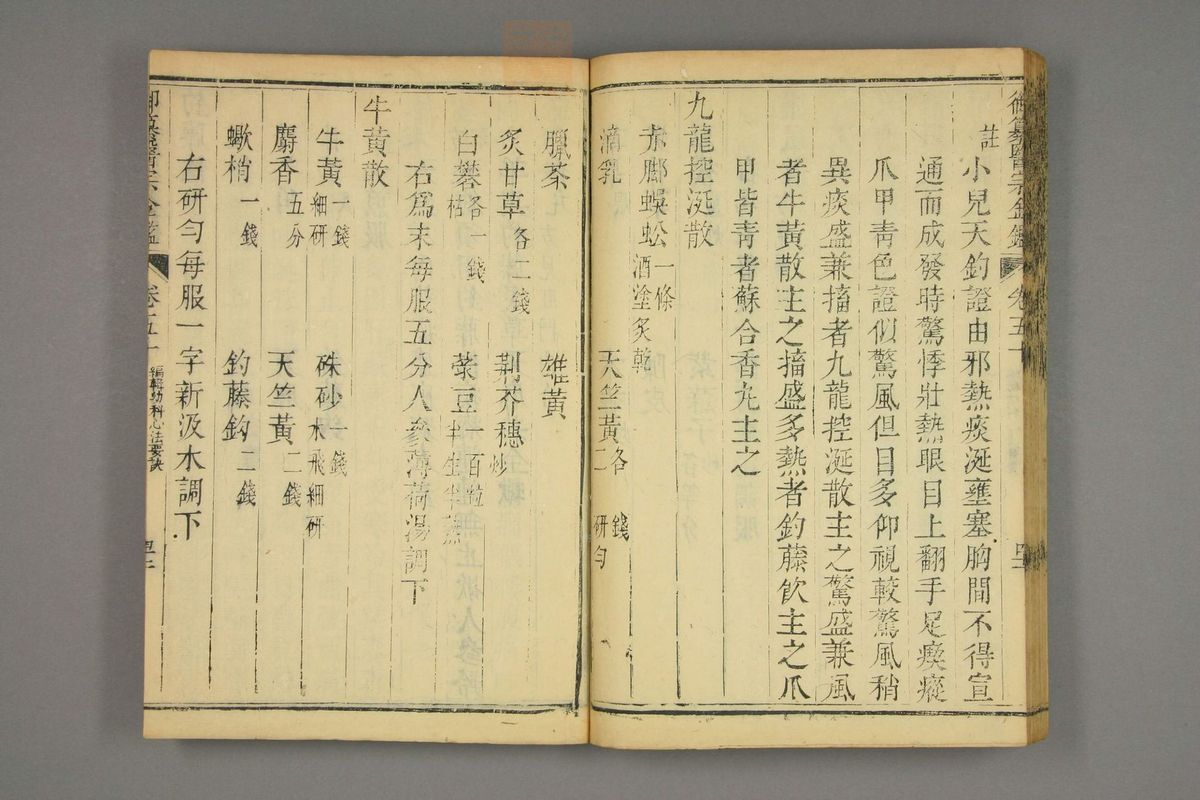 御纂醫宗金鑑 卷五十
註
小兒天釣證由邪熱痰涎壅塞胸間不得宣
通而成發時驚悸壯熱眼目上翻手足瘈瘲
爪甲青色證似驚風但目多仰視較驚風稍
異痰盛兼搐者九龍控涎散主之驚盛兼風
者牛黃散主之搐盛多熱者釣藤飲主之爪
甲皆青者蘇合香丸主之
九龍控涎散
赤腳蜈蚣一條酒塗炙乾
滴乳 天竺黃各二錢研勻
臘茶 雄黃
炙甘草各二錢 荆芥穗炒
白礬各一錢枯 菉豆一百粒半生半熟
右爲末每服五分人參薄荷湯調下
牛黃散
牛黃一錢細研 硃砂一錢水飛細研
麝香五分 天竺黃二錢
蠍梢一錢 釣藤鈎二錢
右研勻每服一字新汲水調下
御纂醫宗金鑑 卷五十 編輯幼科心法要訣